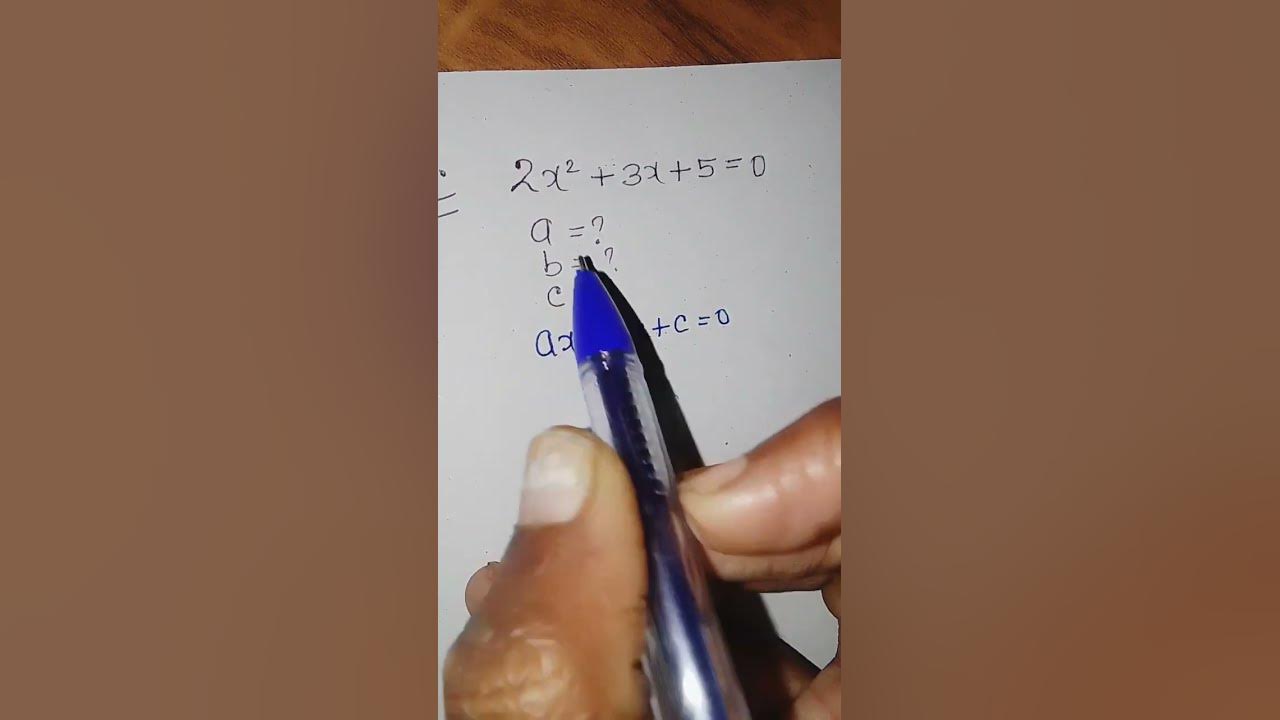 2x² + 3x + 5 = 0
a = ?
b = ?
c
ax + c = 0